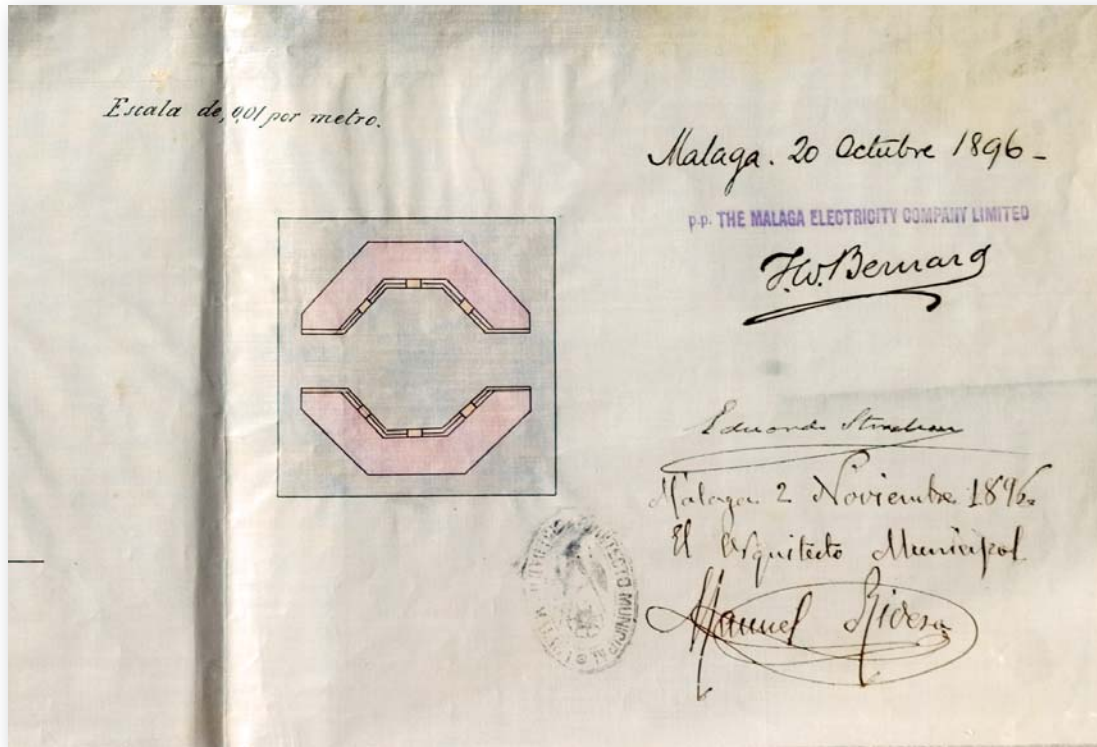 Escala de, 0,01 por metro.
Malaga. 20 Octubre 1896 -
p.p. THE MALAGA ELECTRICITY COMPANY LIMITED
F.W. Bernard
Eduardo Strachan
Málaga 2 Noviembre 1896
El Arquitecto Municipal
Manuel Rivera
ARQUITECTO MUNICIPAL